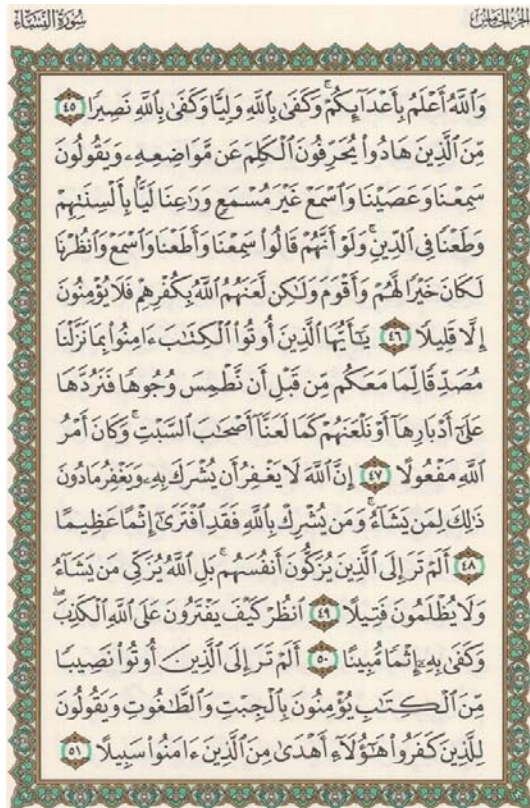 سُورَةُ النِّسَاءِ
الجزء الخامس
وَٱللَّهُ أَعْلَمُ بِأَعْدَآئِكُمْ ۚ وَكَفَىٰ بِٱللَّهِ وَلِيًّا وَكَفَىٰ بِٱللَّهِ نَصِيرًا ٤٥
مِّنَ ٱلَّذِينَ هَادُوا۟ يُحَرِّفُونَ ٱلْكَلِمَ عَن مَّوَاضِعِهِۦ وَيَقُولُونَ
سَمِعْنَا وَعَصَيْنَا وَٱسْمَعْ غَيْرَ مُسْمَعٍ وَرَٰعِنَا لَيًّۢا بِأَلْسِنَتِهِمْ
وَطَعْنًا فِى ٱلدِّينِ ۚ وَلَوْ أَنَّهُمْ قَالُوا۟ سَمِعْنَا وَأَطَعْنَا وَٱسْمَعْ وَٱنظُرْنَا
لَكَانَ خَيْرًا لَّهُمْ وَأَقْوَمَ وَلَٰكِن لَّعَنَهُمُ ٱللَّهُ بِكُفْرِهِمْ فَلَا يُؤْمِنُونَ
إِلَّا قَلِيلًا ٤٦ يَٰٓأَيُّهَا ٱلَّذِينَ أُوتُوا۟ ٱلْكِتَٰبَ ءَامِنُوا۟ بِمَا نَزَّلْنَا
مُصَدِّقًا لِّمَا مَعَكُم مِّن قَبْلِ أَن نَّطْمِسَ وُجُوهًا فَنَرُدَّهَا
عَلَىٰٓ أَدْبَارِهَآ أَوْ نَلْعَنَهُمْ كَمَا لَعَنَّآ أَصْحَٰبَ ٱلسَّبْتِ ۚ وَكَانَ أَمْرُ
ٱللَّهِ مَفْعُولًا ٤٧ إِنَّ ٱللَّهَ لَا يَغْفِرُ أَن يُشْرَكَ بِهِۦ وَيَغْفِرُ مَا دُونَ
ذَٰلِكَ لِمَن يَشَآءُ ۚ وَمَن يُشْرِكْ بِٱللَّهِ فَقَدِ ٱفْتَرَىٰٓ إِثْمًا عَظِيمًا
٤٨ أَلَمْ تَرَ إِلَى ٱلَّذِينَ يُزَكُّونَ أَنفُسَهُم ۚ بَلِ ٱللَّهُ يُزَكِّى مَن يَشَآءُ
وَلَا يُظْلَمُونَ فَتِيلًا ٤٩ ٱنظُرْ كَيْفَ يَفْتَرُونَ عَلَى ٱللَّهِ ٱلْكَذِبَ ۖ
وَكَفَىٰ بِهِۦٓ إِثْمًا مُّبِينًا ٥٠ أَلَمْ تَرَ إِلَى ٱلَّذِينَ أُوتُوا۟ نَصِيبًا
مِّنَ ٱلْكِتَٰبِ يُؤْمِنُونَ بِٱلْجِبْتِ وَٱلطَّٰغُوتِ وَيَقُولُونَ
لِلَّذِينَ كَفَرُوا۟ هَٰٓؤُلَآءِ أَهْدَىٰ مِنَ ٱلَّذِينَ ءَامَنُوا۟ سَبِيلًا ٥١